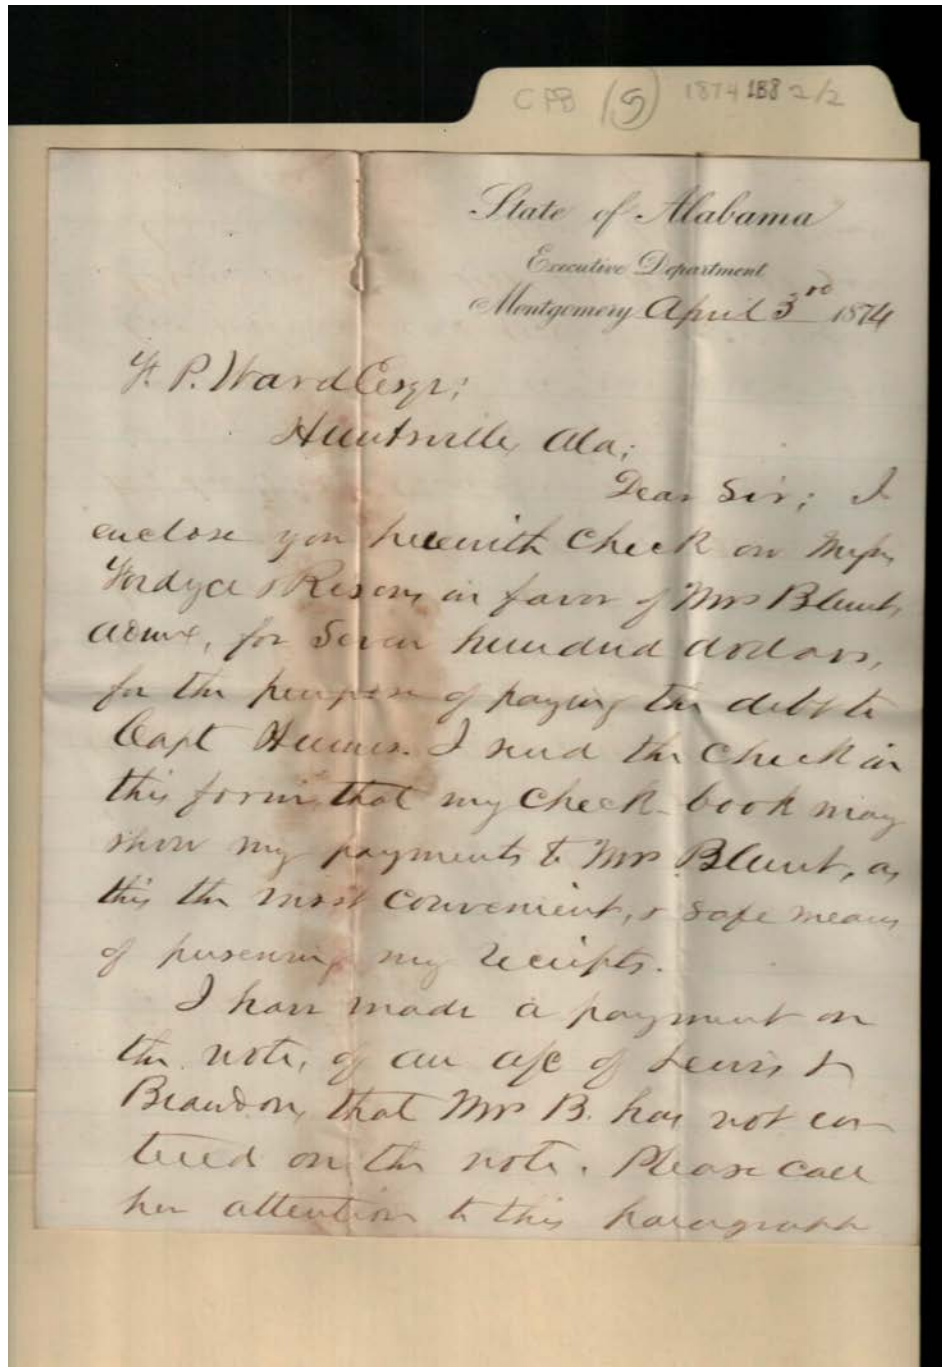 CPB (5) 1874 188 2/2
State of Alabama
Executive Department
Montgomery April 3rd 1874
P. Ward Esqr;
Huntsville, Ala;
Dear Sir; I
enclose you herewith Check on Messrs
Fordyce & Rison, in favor of Mrs Blunt,
admx, for Seven hundred dollars,
for the purpose of paying the debt to
Capt Humes. I send the Check in
this form, that my Check-book may
show my payments to Mrs Blunt, as
this the most convenient, & safe means
of preserving my receipts.
I have made a payment on
the note, of an a/c of Lewis &
Brandon, that Mrs B. has not en-
tered on the note. Please call
her attention to this paragraph